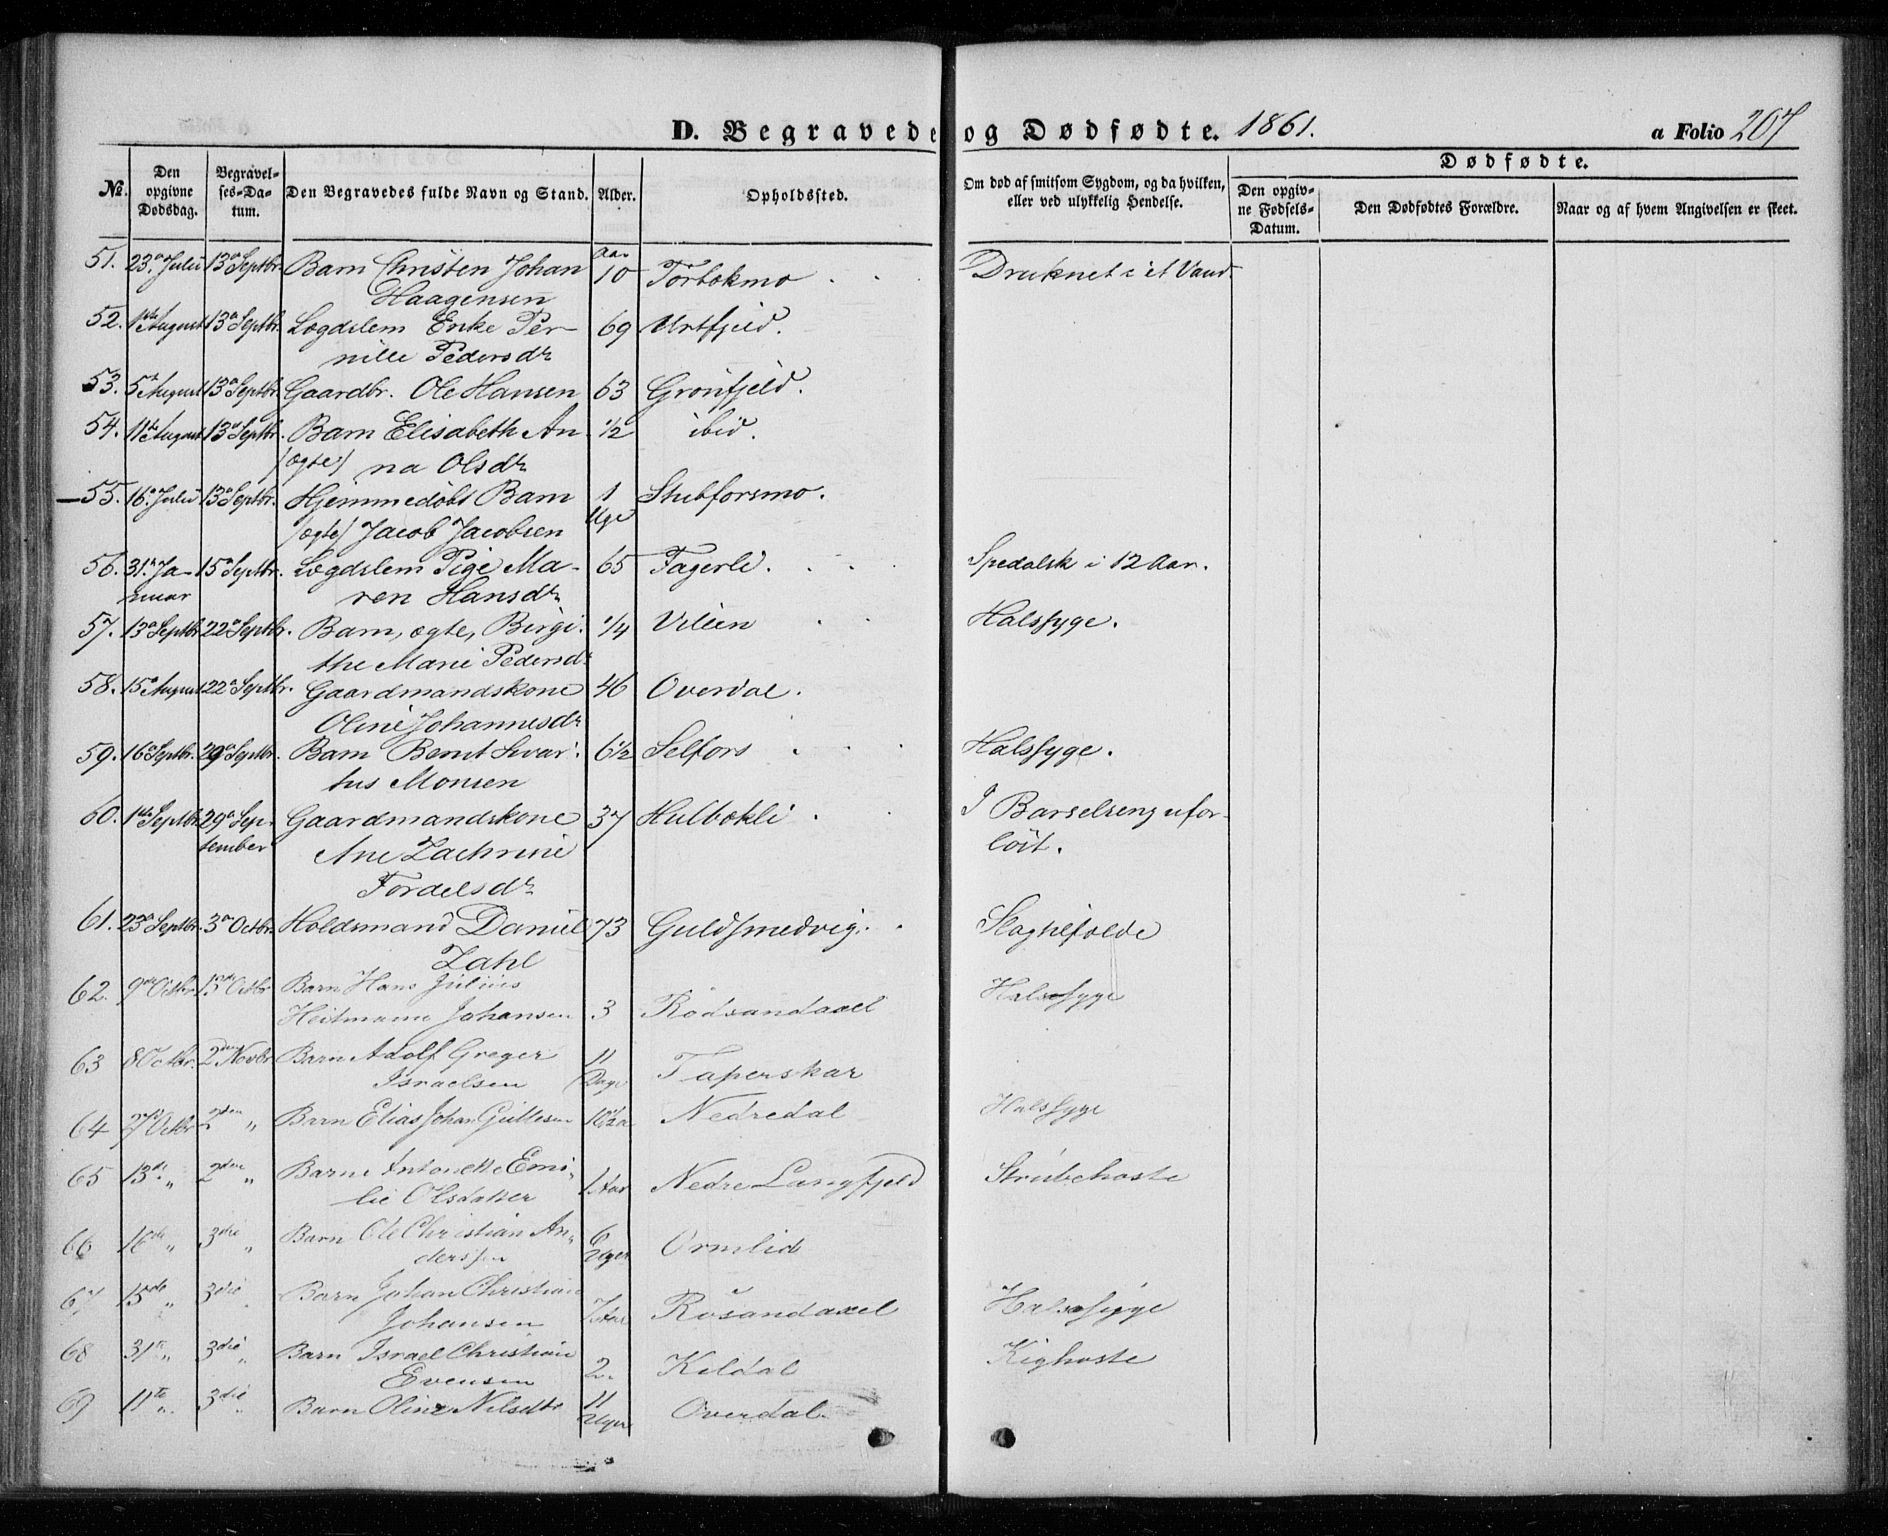 D. Begravede og Dødfødte. 1861. a Folio 207
No. Den opgivne Dødsdag. Begravelses-Datum. Den Begravedes fulde Navn og Stand. Alder. Opholdssted. Om død af smitsom Sygdom, og da hvilken, eller ved ulykkelig Hendelse. Dødfødte.
Den opgivne Fødsels-Datum. Den Dødfødtes Forældre. Naar og af hvem Angivelsen er skeet.
51. 23de Julii 13de Septbr. Barn Christen Johan Aar 10 Tortbakmo Druknet i et Vand.
Haagensen
52. 1ste August 13de Septbr. Lægdslem Enke Per- 69 Urtfjeld.
nille Pedersdr
53. 5te August 13de Septbr. Gaardbr. Ole Hansen 63 Grønfjeld.
54. 11te August 13de Septbr. Barn Elisabeth An- 1/2 ibid.
/ægte/ na Olsdr
55. 16de Julii 13de Septbr. Hjemmedøbt Barn 1 Stubforsmo.
/ægte/ Jacob Jacobsen Uge
56. 31te Ja- 15de Septbr. Lægdslem Pige Ma- 65 Fagerli. Spedalsk i 12 Aar.
nuar ren Hansdr
57. 13de Septbr 22de Septbr. Barn, ægte, Birgi- 1/4 Vilien Halssyge.
the Marie Pedersdr
58. 15de August 22de Septbr. Gaardmandskone 46 Overdal.
Oline Johannesdr
59. 16de Septbr. 29de Septbr. Barn Bernt Sivar- 6 1/2 Selfors Halssyge.
tus Monsen
60. 1ste Septbr 29de Sep- Gaardmandskone 37 Hulbækli I Barselseng ufor-
tember Ane Zachrine løst.
Fordelsdr
61. 23de Septbr. 3die Octbr. Holdsmand Daniel 73 Guldsmedvig. Slagtilfælde
Zahl
62. 9de Octbr 13de Octbr Barn Hans Julius
Heitmann Johansen 3 Rødsandaxel Halssyge
63 8 Octbr. 2den Novbr Barn Adolf Greger 11 Taperskar
Israelsen Dage
64 27de Octbr 2den " Barn Elias Johan Gullesen 10 1/2 a Nedredal Halssyge
65 13de " 2den " Barn Antonette Emi- 1 Aar Nedre Langfjeld Strubehoste
lie Olsdatter
66 16de " 3die " Barn Ole Christian An- 6 Ormlid
derssen Uger
67 15de " 3die " Barn Johan Christian
Johansen 7 Aar Røsandaxel Halssyge
68 31te " 3die " Barn Israel Christian 2 Kildal Kighoste
Evensen
69 11te " 3die " Barn Oline Nilsdtr 11 Overdal
Uger